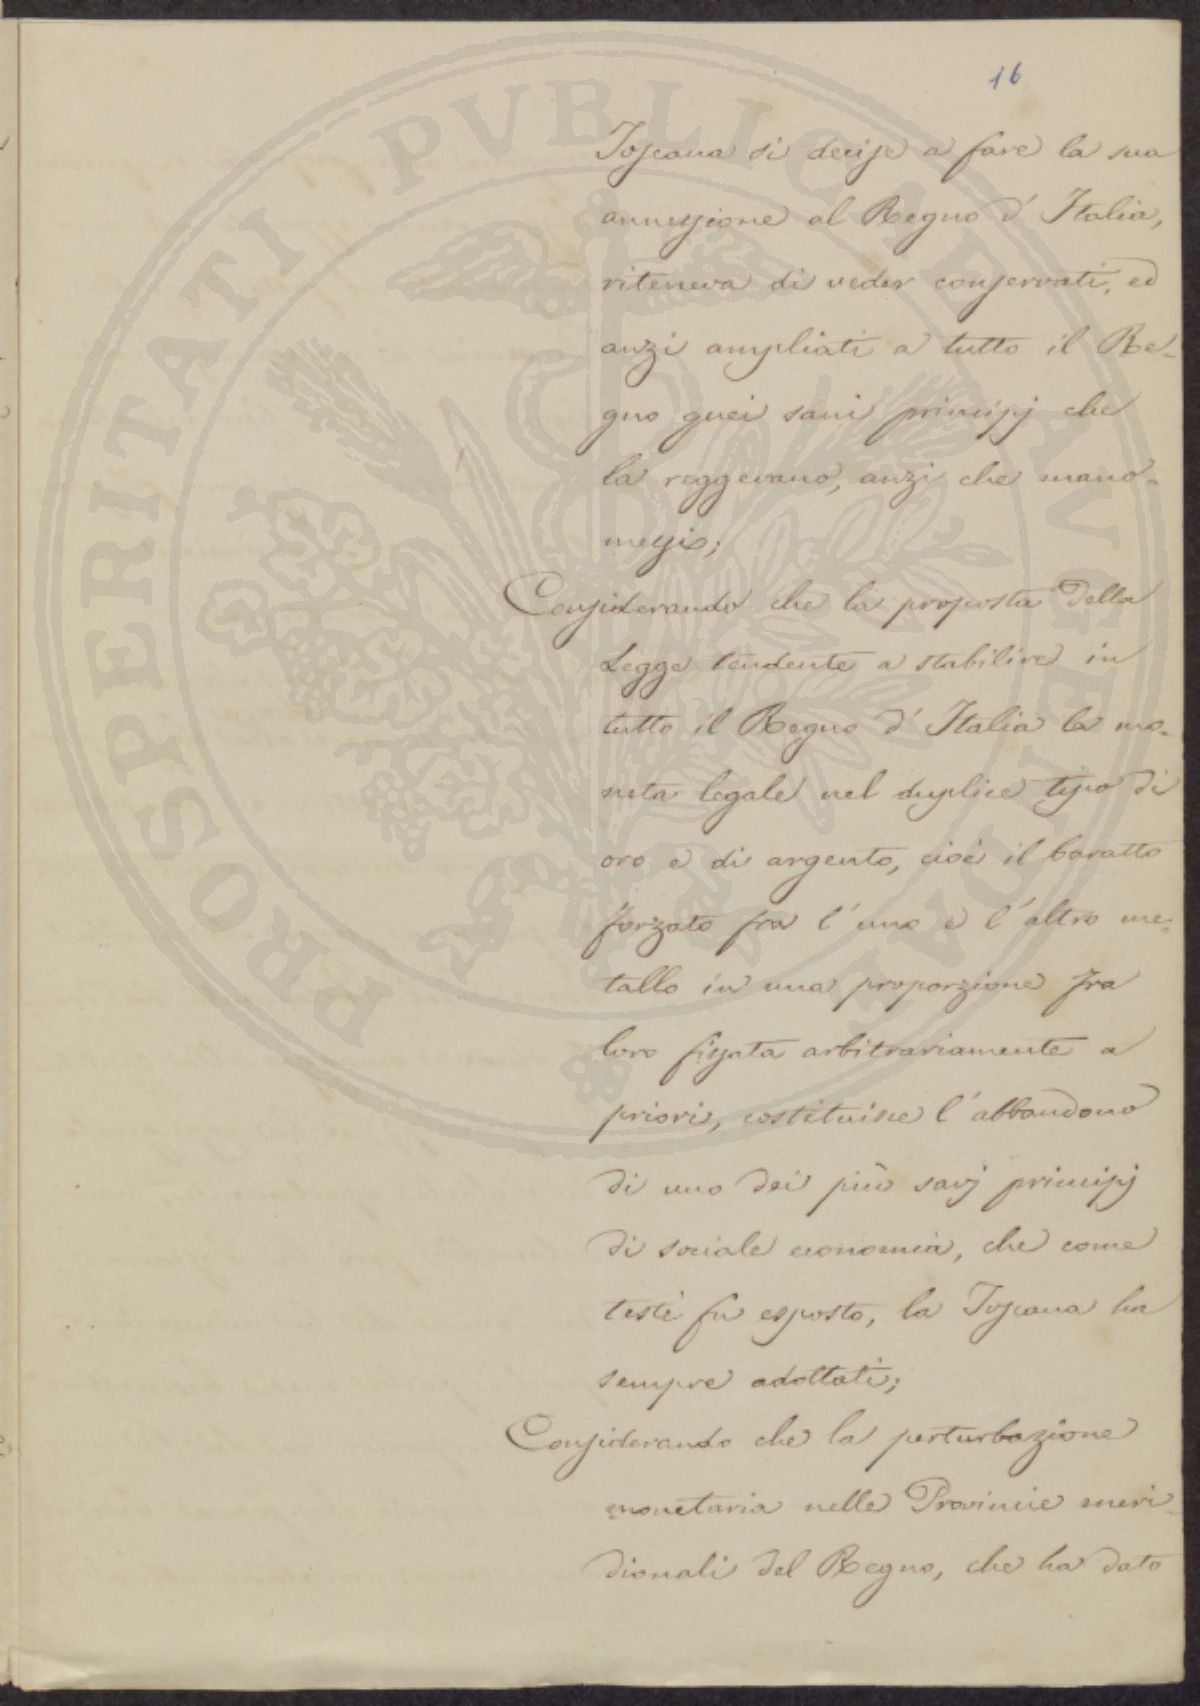 16
Toscana si decise a fare la sua
annessione al Regno d'Italia,
riteneva di veder conservati, ed
anzi ampliati a tutto il Re-
gno quei sani principj che
la reggevano, anzi che mano-
messi;
Considerando che la proposta della
Legge tendente a stabilire in
tutto il Regno d'Italia la mo-
neta legale nel duplice tipo di
oro e di argento, cioè il baratto
forzato fra l'uno e l'altro me-
tallo in una proporzione fra
loro fissata arbitrariamente a
priori, costituisce l'abbandono
di uno dei più savj principj
di sociale economia, che come
testè fu esposto, la Toscana ha
sempre adottati;
Considerando che la perturbazione
monetaria nelle Provincie meri-
dionali del Regno, che ha dato
PROSPERITATI PVBLICAE AVGENDAE